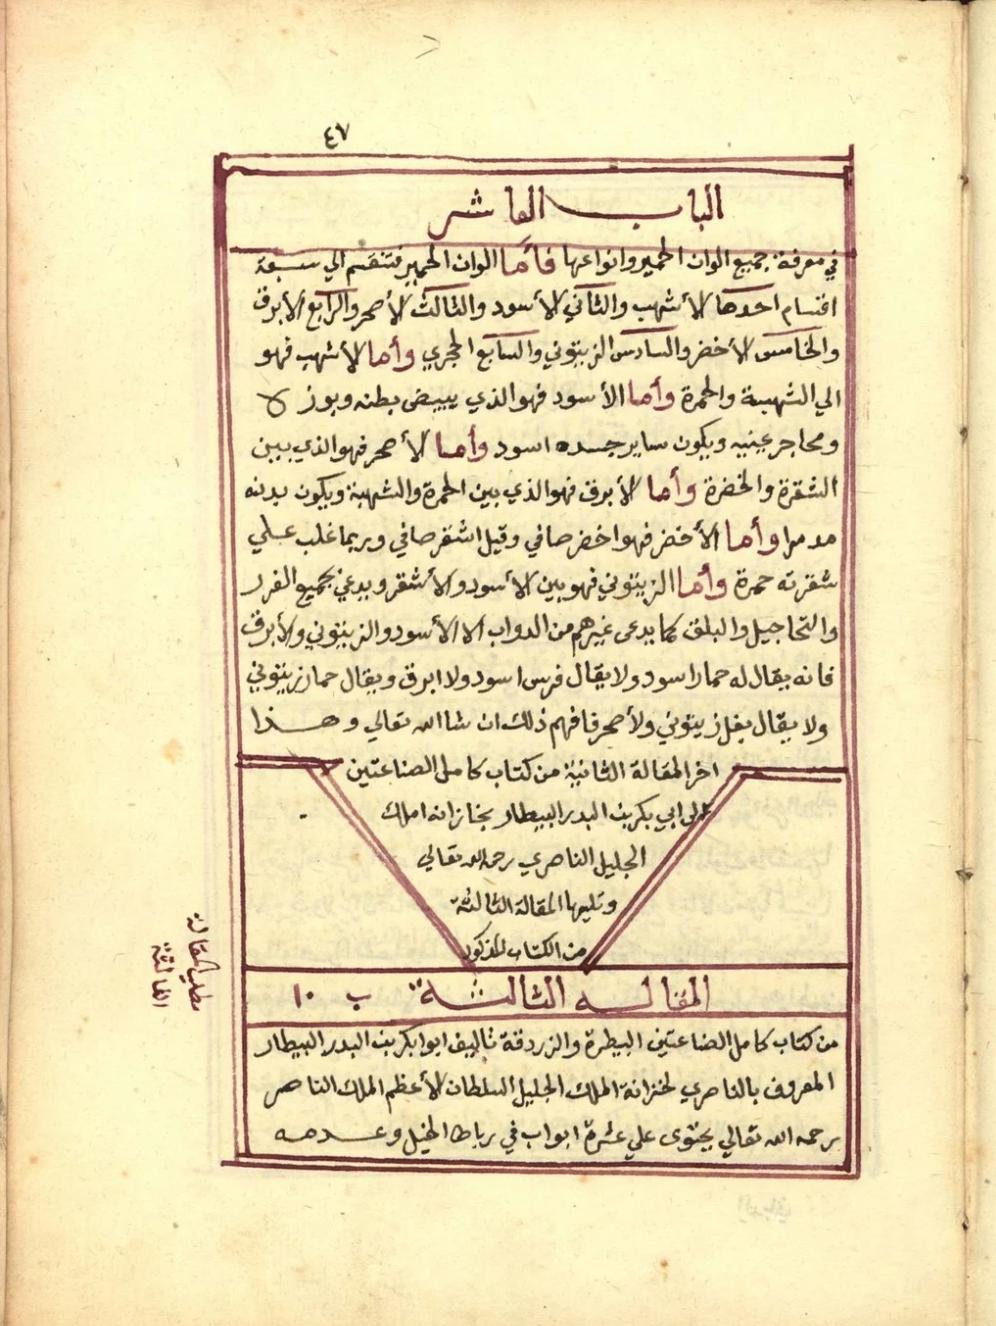 ٤٧
الباب العاشر
في معرفة جميع الوان الحمير وانواعها فأما الوان الحمير فتنقسم الي سبعة
اقسام احدها الأشهب والثاني الأسود والثالث الأصحر والرابع الأبرق
والخامس الأخضر والسادس الزيتوني والسابع الحجري وأما الأشهب فهو
الي الشهبة والحمرة وأما الأسود فهو الذي يبيض بطنه وبوز لا
ومحاجر عينيه ويكون ساير جسده اسود وأما الأصحر فهو الذي بين
الشقرة والخضرة وأما الأبرق فهو الذي بين الحمرة والشهبة ويكون بدنه
مدمرا وأما الأخضر فهو اخضر صافي وقيل اشقر صافي وربما غلب علي
شقرته حمرة وأما الزيتوني فهو بين الأسود والأشقر ويدعي بجميع الغرر
والتحاجيل والبلق كما يدعى غيرهم من الدواب الا الأسود والزيتوني والأبرق
فانه يقال له حمار اسود ولا يقال فرس اسود ولا ابرق ويقال حمار زيتوني
ولا يقال بغل زيتوني ولأصحر فافهم ذلك ان شا الله تعالي وهذا
اخر المقالة الثانية من كتاب كامل الصناعتين
الى ابي بكر بن البدر البيطار بخازانه املك
الجليل الناصري رحمه الله تعالي
وتليها المقالة الثالثة
من الكتاب المذكور
المقاله الثالثة ب ١٠
مطلب المقالة
الثالثة
من كتاب كامل الصناعتين البيطرة والزردقة تاليف ابوا بكر بن البدر البيطار
المعروف بالناصري لخزانة الملك الجليل السلطان الأعظم الملك الناصر
رحمه الله تعالي يحتوى علي عشرة ابواب في رباط الخيل وعدمه